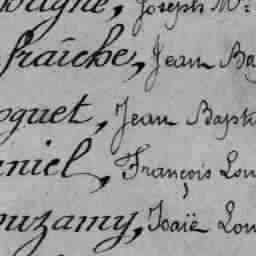 pagne, Joseph M.
fraîche, Jean Ba
oguet, Jean Bapti
niel, François Lou
ouzamy, Isaïe Lou